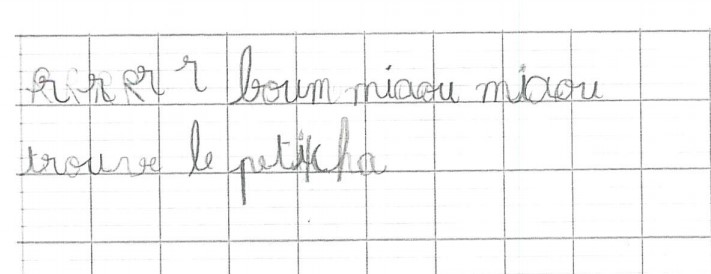 r r r r boum miaou miaou
trouve le petitcha